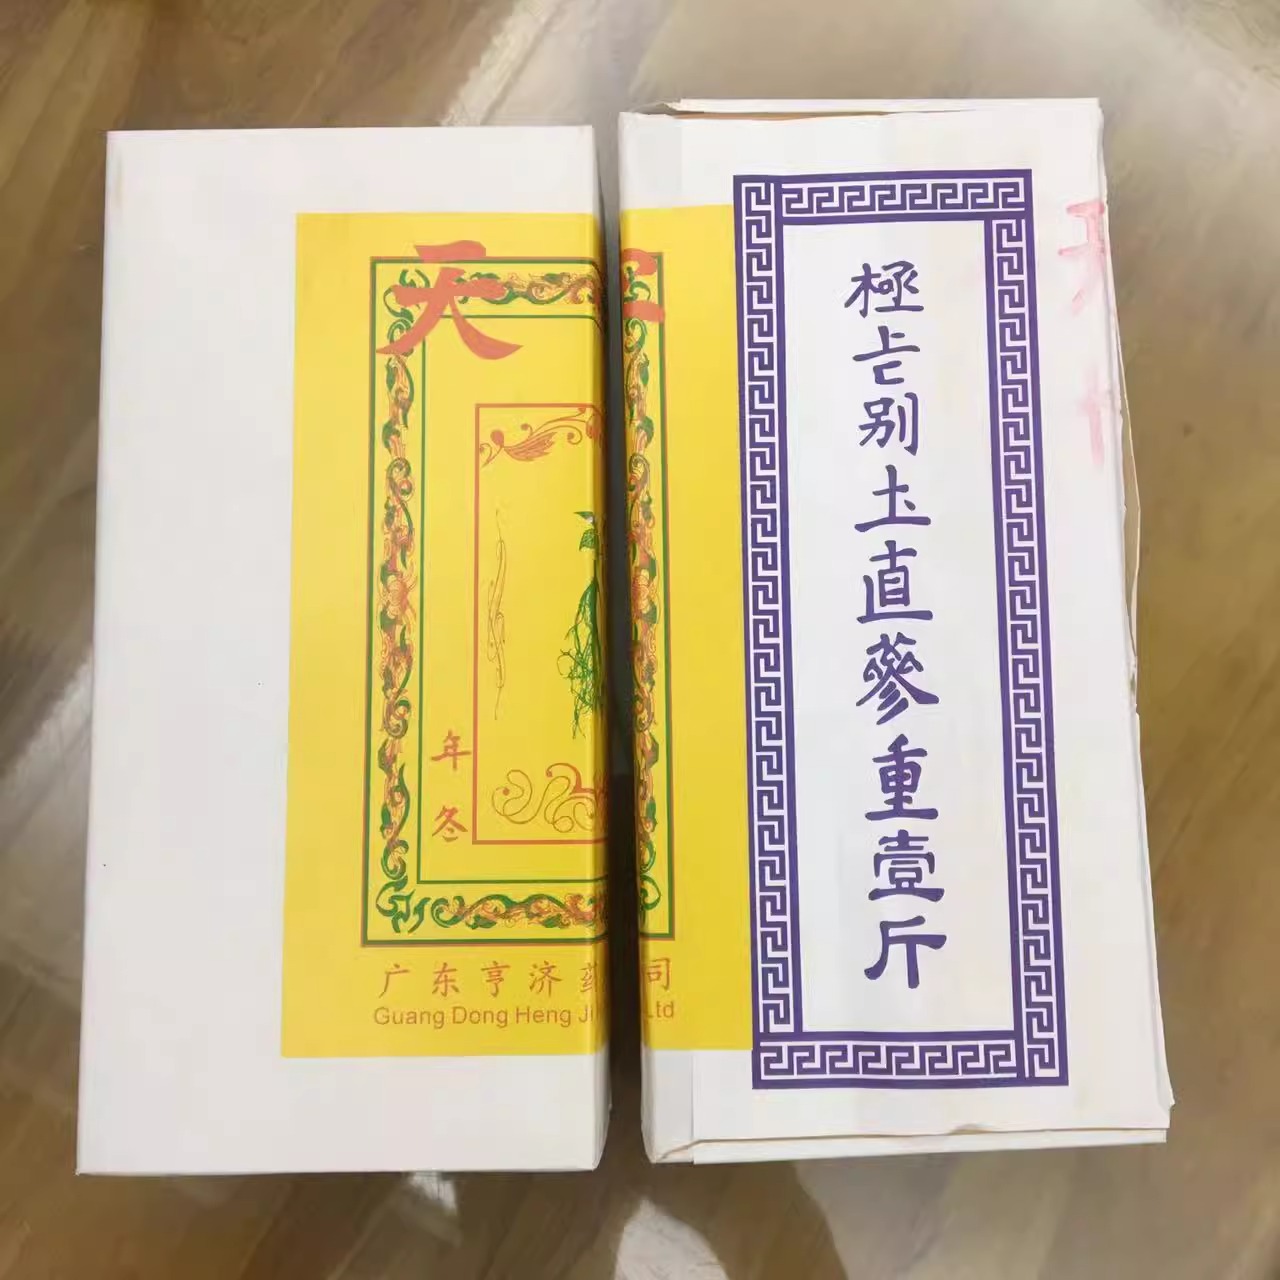 天
年
冬
广东亨济药 司
Guang Dong Heng Ji Ltd
極上别土直蔘重壹斤